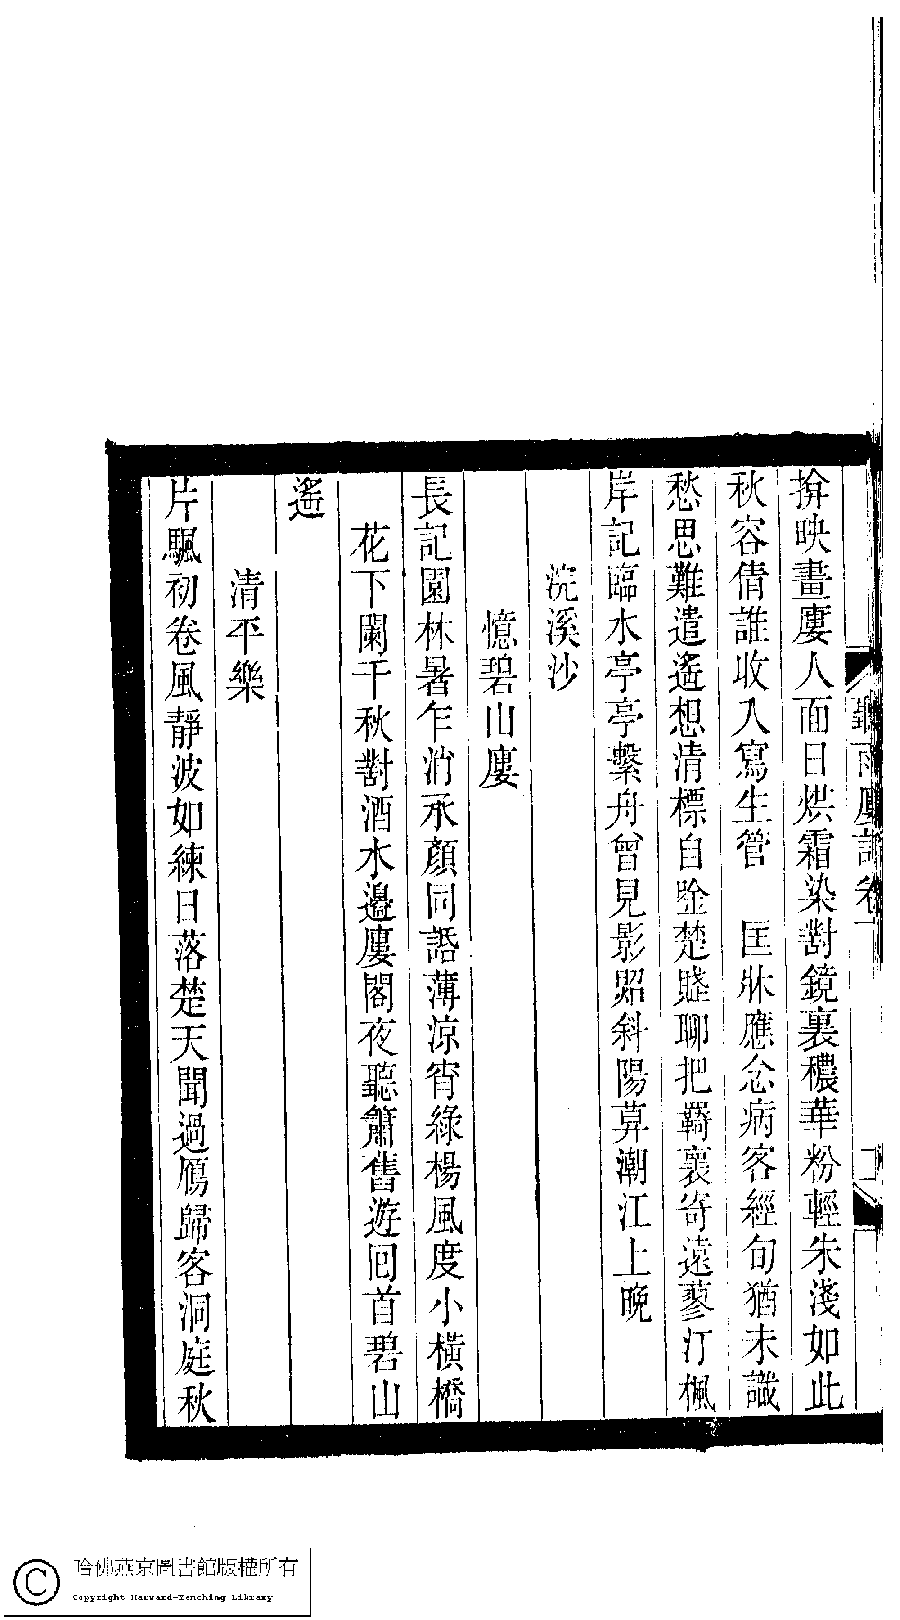 聽雨廔詞卷一
揜映畫廔人面日烘霜染對鏡裏穠華粉輕朱淺如此
秋容倩誰收入寫生管　匡牀應念病客經旬猶未識
愁思難遣遙想清標自唫楚騷聊把羇褱寄遠蓼汀楓
岸記臨水亭亭繫舟曾見影照斜陽莫潮江上晚
浣溪沙
憶碧山廔
長記園林暑乍消承顏同語薄涼宵綠楊風度小橫橋
花下闌干秋對酒水邊廔閣夜聽簫舊遊回首碧山
遙
清平樂
片颿初卷風靜波如練日落楚天聞過鴈歸客洞庭秋
哈佛燕京圖書館版權所有
Copyright Harvard-Yenching Library